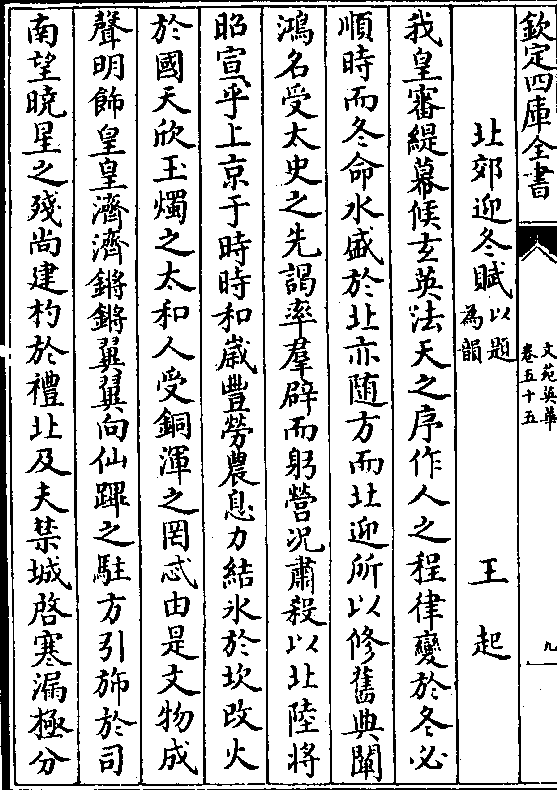 欽定四庫全書
文苑英華
卷五十五
九
北郊迎冬賦以題為韻
王起
我皇審緹幕候玄英法天之序作人之程律變於冬必
順時而冬命水盛於北亦隨方而北迎所以修舊典闡
鴻名受太史之先謁率羣辟而躬營况肅殺以北陸將
昭宣乎上京于時時和嵗豐勞農息力結氷於坎改火
於國天欣玉燭之太和人受銅渾之罔忒由是文物成
聲明飾皇皇濟濟鏘鏘翼翼向仙蹕之駐方引斾於司
南望曉星之殘尚建杓於禮北及夫禁城啓寒漏極分